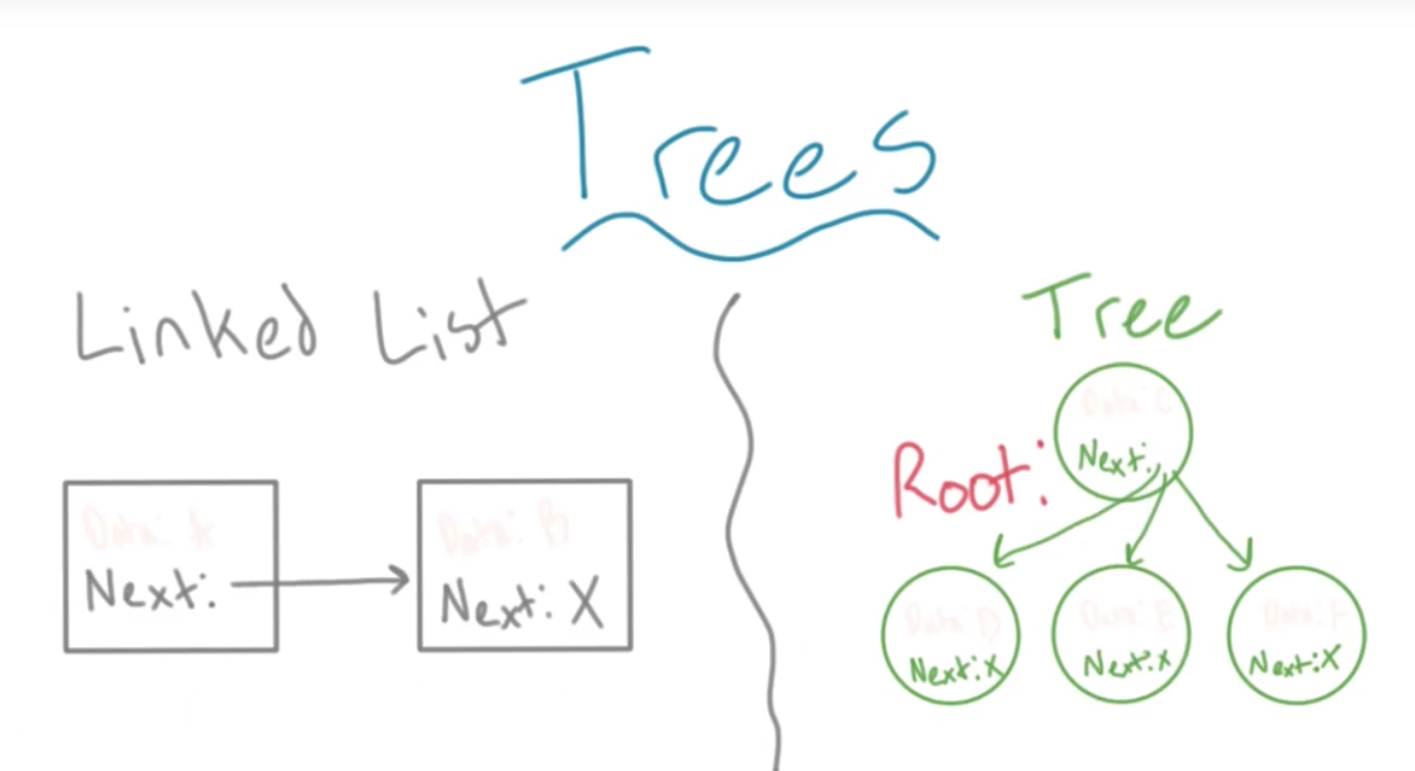 Trees
Linked List
Data: A
Next:
Data: B
Next: X
Tree
Root:
Data: C
Next:
Data: D
Next: X
Data: E
Next: X
Data: F
Next: X